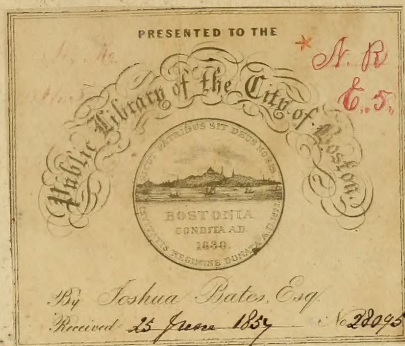 PRESENTED TO THE
* N. R
E. 5.
Public Library of the City of Boston
SICUT PATRIBUS SIT DEUS NOBIS
BOSTONIA
CONDITA AD.
1630.
CIVITATIS REGIMINE DONATA A.D. 1822
By Joshua Bates, Esq.
Received 25 June 1857 No 28095